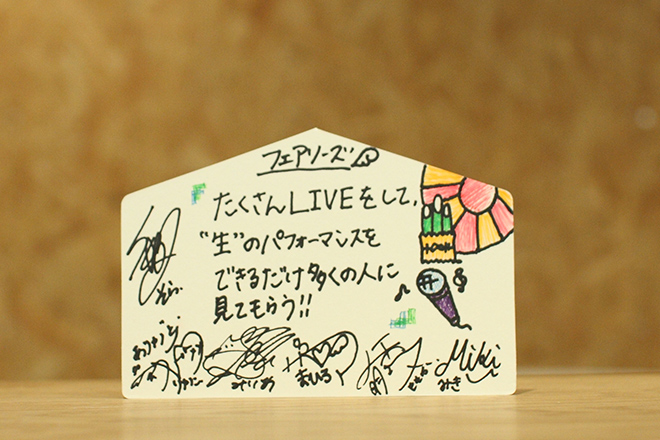 フェアリーズ
たくさんLIVEをして、
"生"のパフォーマンスを
できるだけ多くの人に
見てもらう!!
そら
みりあ
まひろ
Miki
みき